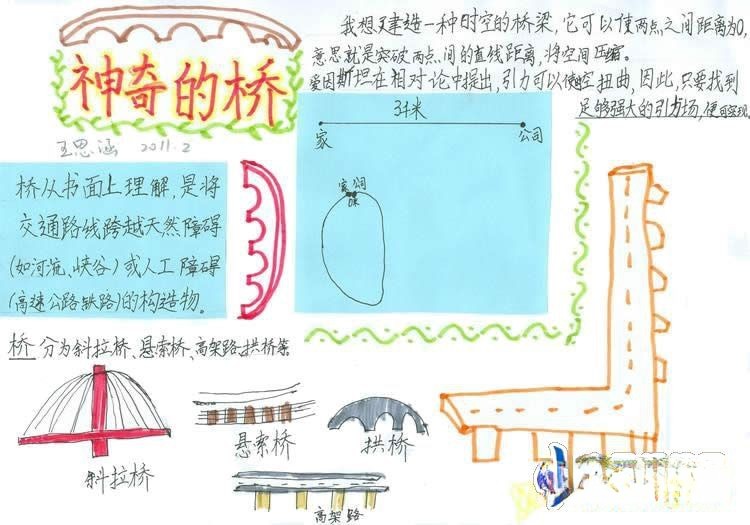 神奇的桥
王思涵 2011.2
我想建造一种时空的桥梁,它可以使两点之间距离为0,
意思就是突破两点间的直线距离,将空间压缩。
爱因斯坦在相对论中提出,引力可以使空扭曲,因此,只要找到
足够强大的引力场,便可实现
3千米
家 公司
家 公司
桥
桥从书面上理解,是将
交通路线跨越天然障碍
(如河流、峡谷)或人工障碍
(高速公路铁路)的构造物。
桥 分为斜拉桥、悬索桥、高架路、拱桥等。
斜拉桥
悬索桥
拱桥
高架路